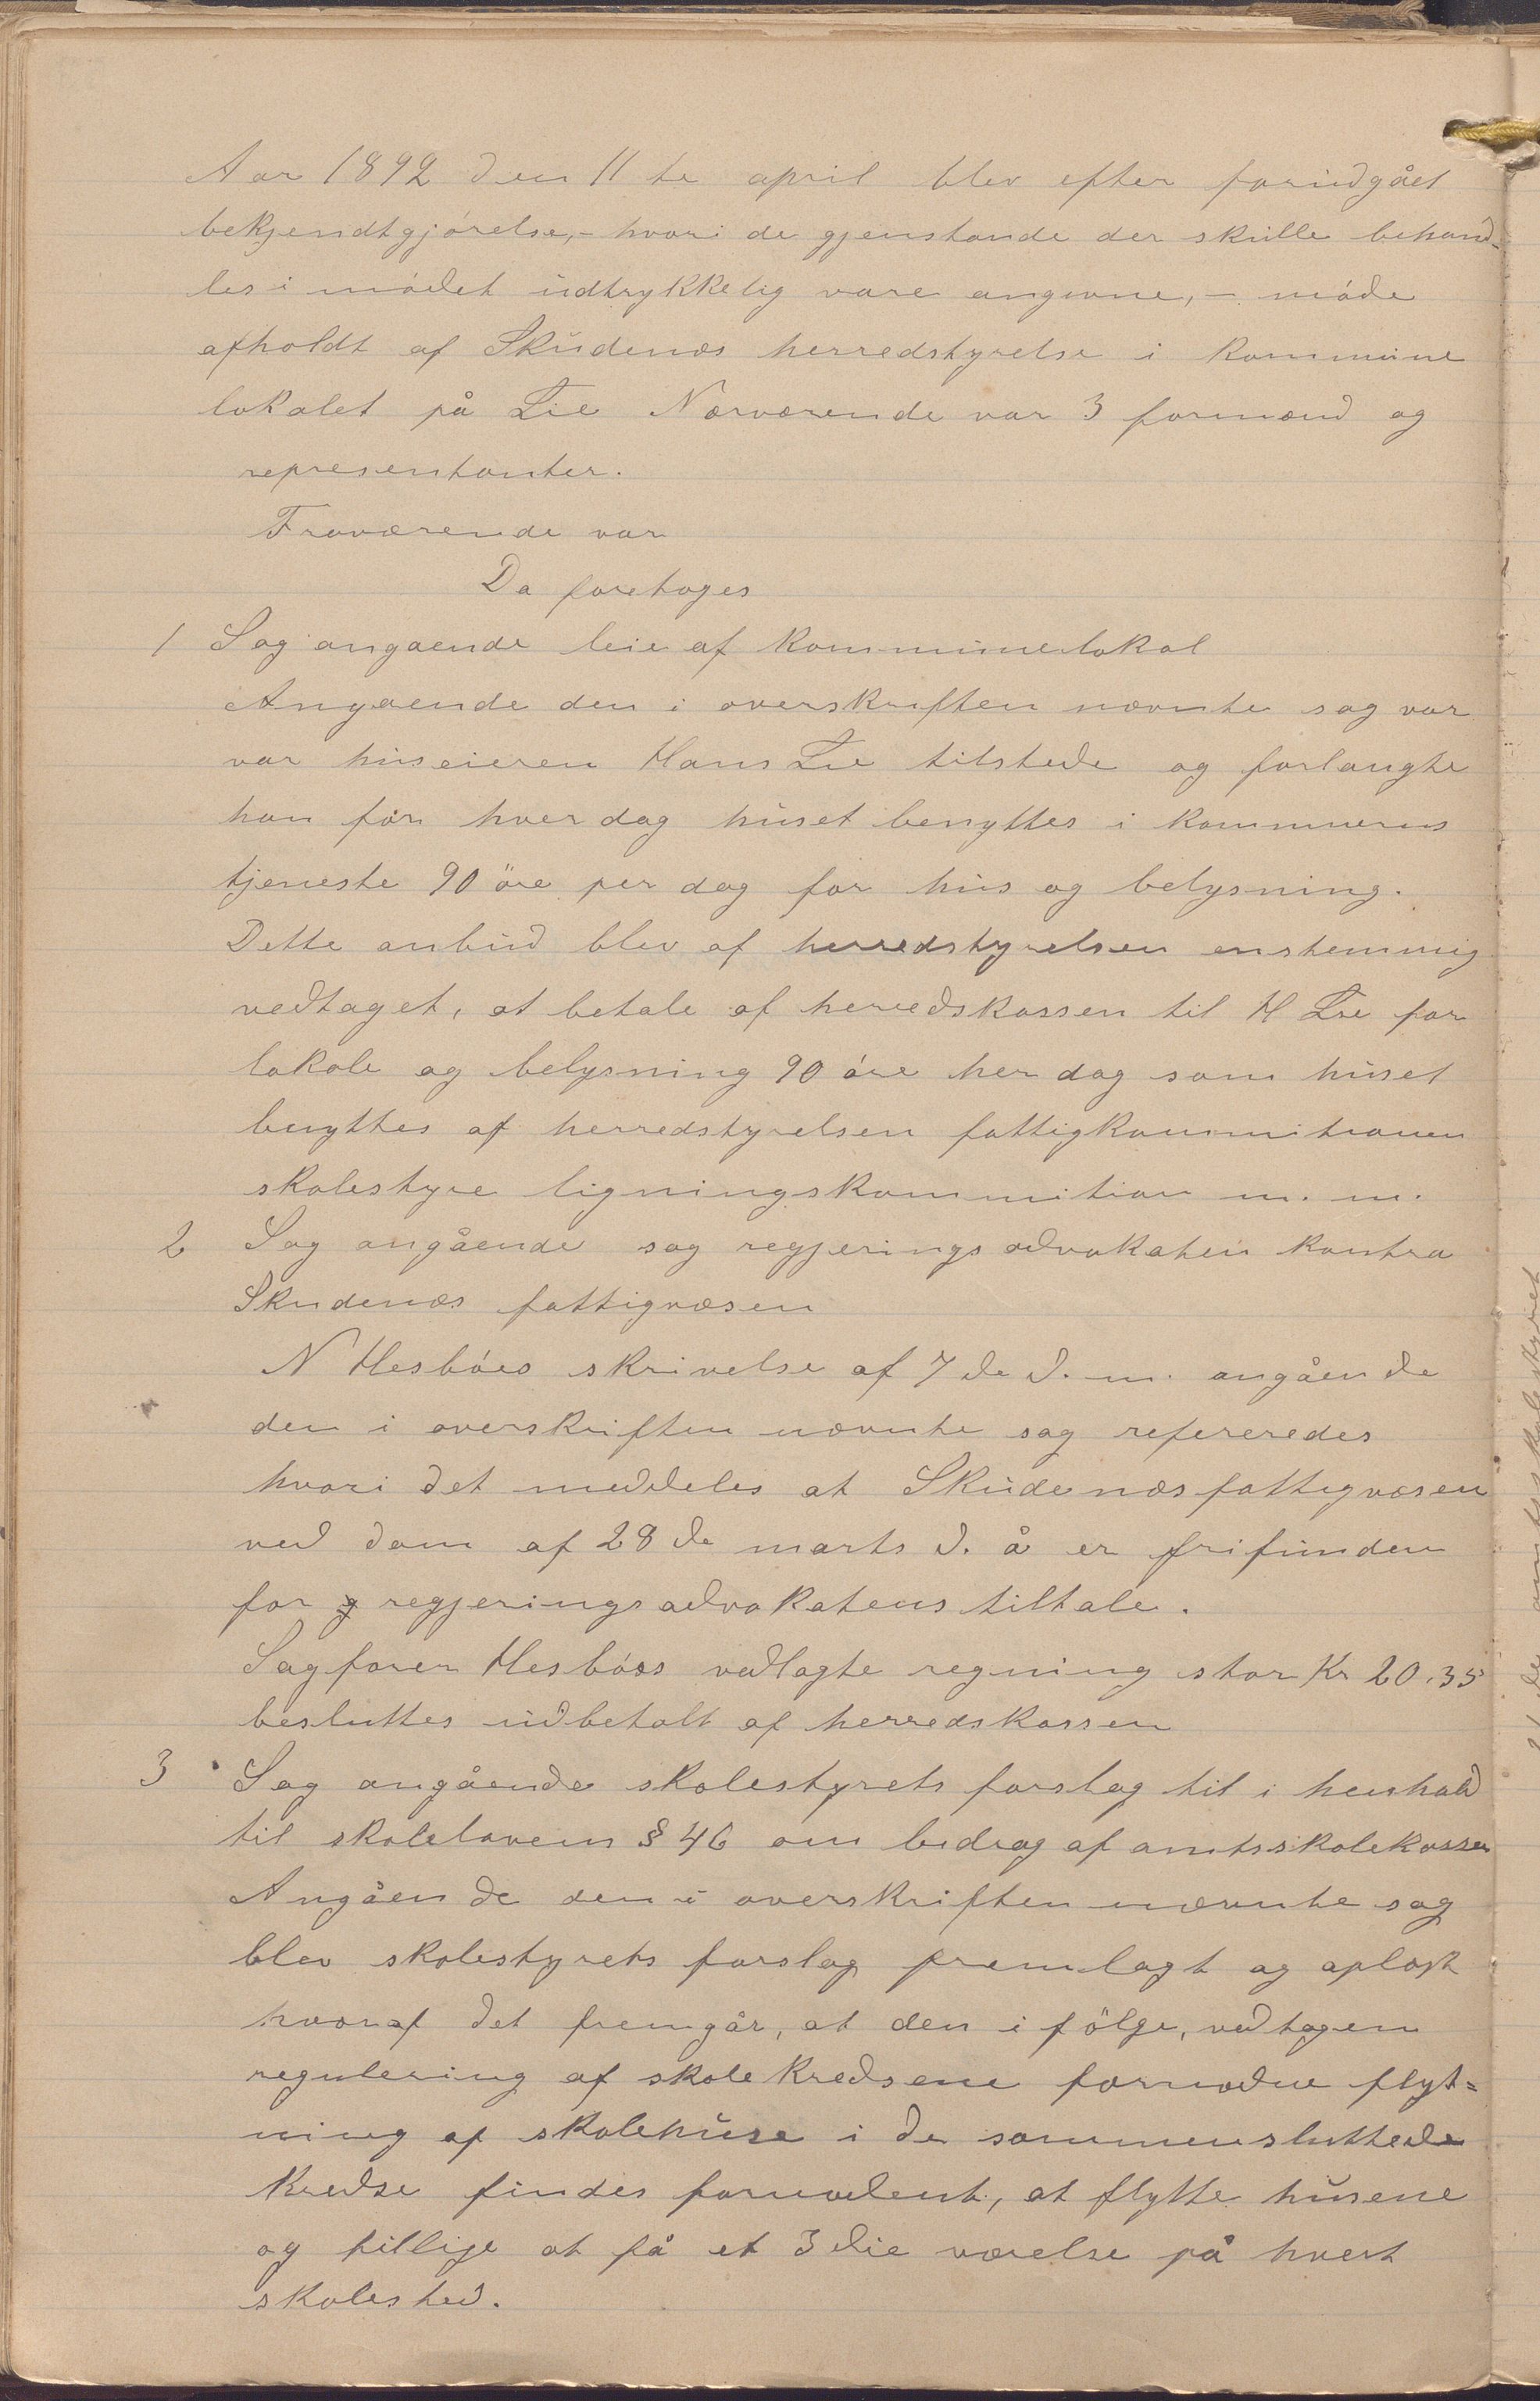 Aar 1892 den 11te april blev efter forudgået
bekjendtgjórelse,- hvori de gjenstande der skulle behand-
les i mödet udtrykkelig vare angivne,- móde
afholdt af Skudenæs herredstyrelse i kommune
lokalet på Lie Nærværende var 3 formænd og
representanter.
Fraværende var
Da foretoges
1 Sag angaende leie af kommunelokal
Angaende den i overskriften nævnte sag var
var huseieren Hans Lie tilstede og forlangte
han for hver dag huset benyttes i kommunens
tjeneste 90 öre per dag for hus og belysning.
Dette anbud blev af herredstyrelsen enstemmig
vedtaget, at betale af herredskassen til H Lie for
lokale og belysning 90 óre her dag som huset
benyttes af herredstyrelsen fattigkommitionen
skolestyre ligningskommition m. m.
2 Sag angående sag regjeringsadvokaten kontra
Skudenæs fattigvæsen
N Hesbóes skrivelse af 7de d. m. angående
den i overskriften nævnte sag refereredes
hvori det meddeles at Skudenæs fattigvæsen
ved dom af 28de marts d. å er frifunden
for regjeringsadvokatens tiltale.
Sagforer Hesbóes vedlagte regning stor Kr 20.35
besluttes udbetalt af herredskassen
3 Sag angående skolestyrets forslag til i henhold
til skoleloven § 46 om bidrag af amtsskolekassen
Angående den i overskriften nævnte sag
blev skolestyrets forslag fremlagt og oplæst
hvoraf det fremgår, at den i fölge, vedtagen
regulering af skolekredsene fornødne flyt=
ning af skolehuse i de sammensluttede
kredse findes fornødent, at flytte husene
og tillige at få et 3die værelse på hvert
skolested.